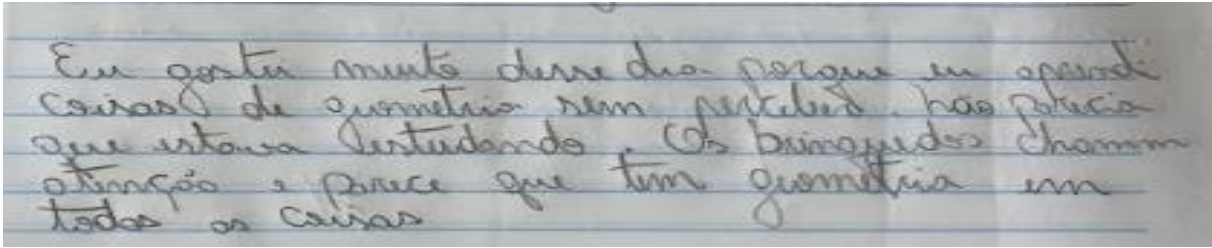 Eu gostei muito desse dia porque eu aprendi
coisas de geometria sem perceber. não parecia
que estava estudando. Os brinquedos chamam
atenção e parece que tem geometria em
todas as coisas